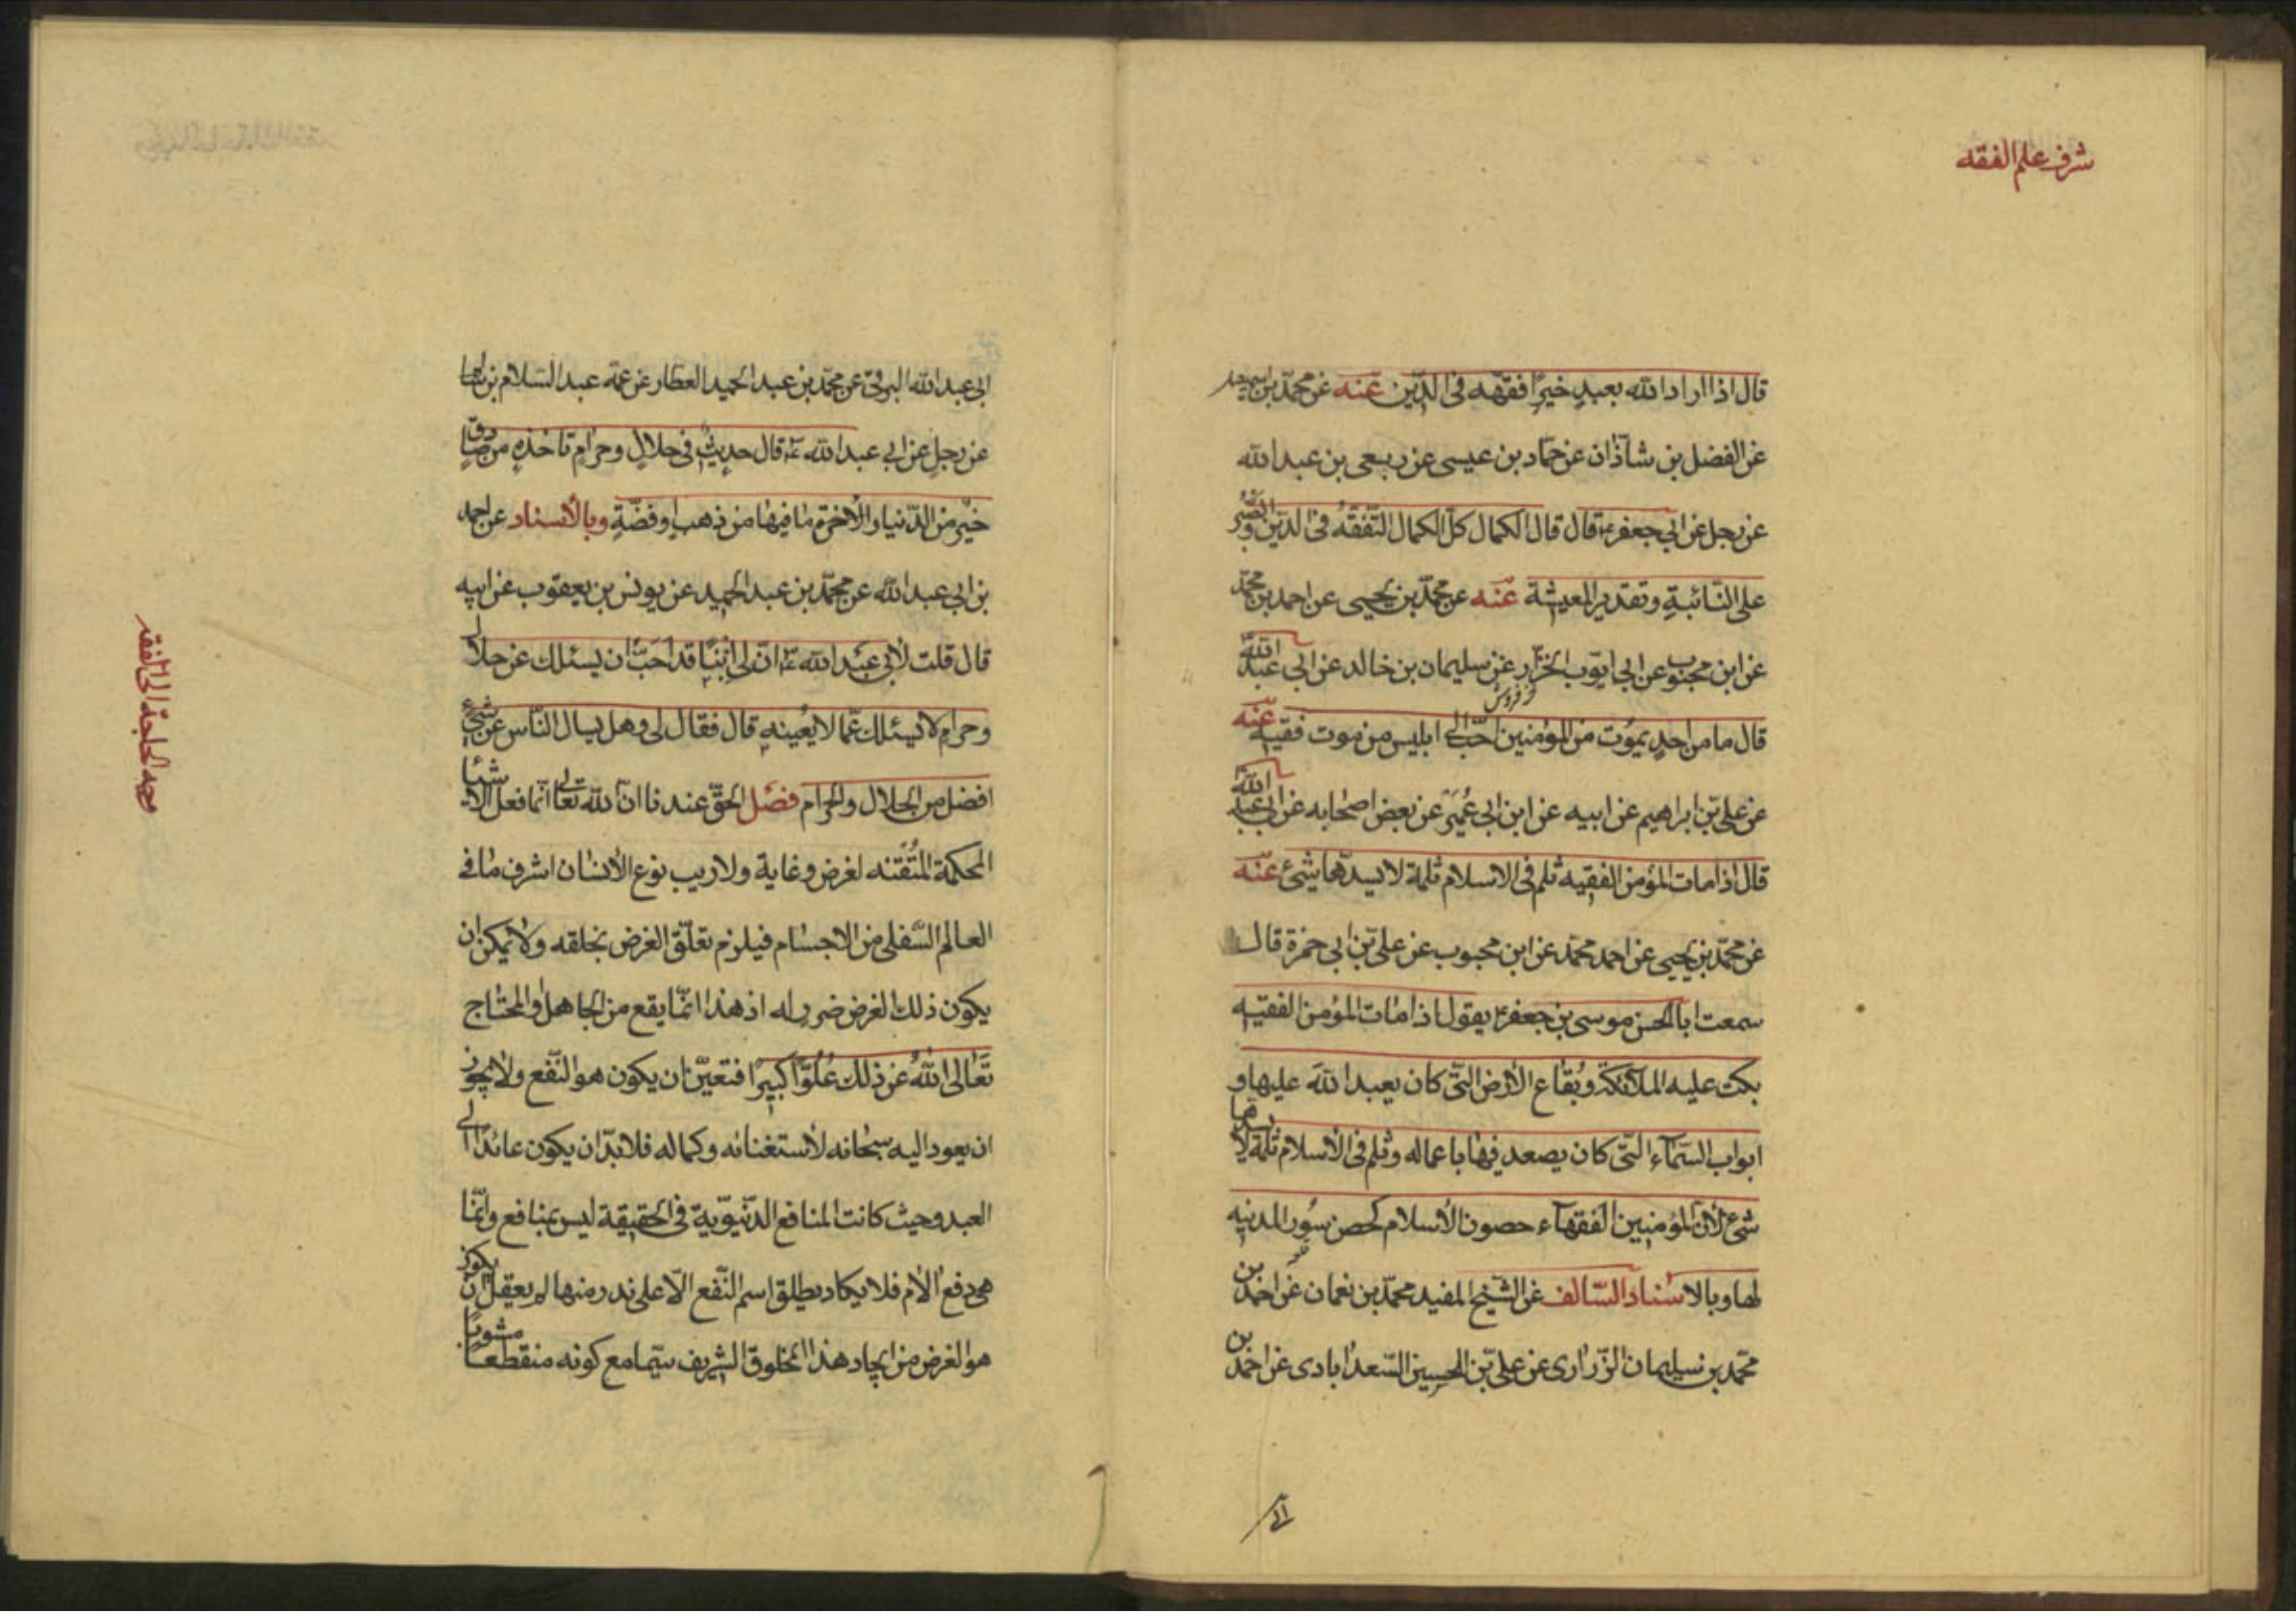 شرف علم الفقه
قال اذا اراد الله بعبد خيرًا فقّهه فى الدّين عنه عن محمّد بن اسمعيل
عن الفضل بن شاذان عن حمّاد بن عيسى عن ربعى بن عبد الله
عن رجل عن ابى جعفر ع قال قال الكمال كلّ الكمال التّفقّه فى الدّين والصّبر
على النّائبة وتقدير المعيشة عنه عن محمّد بن يحيى عن احمد بن محمّد
عن ابن محبوب عن ابى ايّوب الخزّاز عن سليمان بن خالد عن ابى عبد الله
قال ما من احدٍ يموت من المؤمنين احبّ الى ابليس من موت فقيه عنه
عن على بن ابراهيم عن ابيه عن ابن ابى عُمَير عن بعض اصحابه عن ابى عبد الله
قال اذا مات المؤمن الفقيه ثلم فى الاسلام ثلمة لا يسدّها شئ عنه
عن محمّد بن يحيى عن احمد محمّد عن ابن محبوب عن على بن ابى حمزة قال
سمعت ابا الحسن موسى بن جعفر ع يقول اذا مات المؤمن الفقيه
بكت عليه الملآئكة وبُقاع الأرض الّتى كان يعبد الله عليها و
ابواب السّمآء الّتى كان يصعد فيها باعماله وثلم فى الأسلام ثلمة لا يسدها
شئ لأن المؤمنين الفقهآء حصون الأسلام كحصن سُور المدنيه
لها وبالاسناد السّالف عن الشّيخ المفيد محمّد بن نعمان عن احمد بن
محمّد بن سليمان الزّرارى عن علىّ بن الحسين السّعدابادى عن احمد بن
ابى عبد الله البرقىّ عن محمّد بن عبد الحميد العطّار عن عمّه عبد السّلام بن سالم
عن رجلٍ عن ابى عبد الله ع قال حديثٌ فى حلالٍ وحرامٍ تأخذه من صادق
خيرٌ من الدّنيا والأخرة ما فيها من ذهبٍ او فضّةٍ وبالأسناد عن احمد
بن ابى عبد الله عن محمّد بن عبد الحميد عن يونس بن يعقوب عن ابيه
قال قلت لأبى عبد الله ع انّ لى ابنًا قد احبّ ان يسئلك عن حلال
وحرامٍ لا يسئلك عمّا لا يعينه قال فقال لى وهل يسال النّاس عن شئٍ
افضل من الحلال والحرام فصل الحقّ عندنا انّ الله تعالى انّما فعل الأشيا
المحكمة المتقنه لغرض وغاية ولا ريب نوع الأنسان اشرف ما فى
العالم السّفلى من الاجسام فيلزم تعلّق الغرض بخلقه ولا يمكن ان
يكون ذلك الغرض ضرر له اذ هذا انّما يقع من الجاهل او المحتاج
تعالى الله عن ذلك عُلوًّا كبيرًا فتعيّن ان يكون هو النّفع ولا يجوز
ان يعود اليه سبحانه لأستغنائه وكماله فلا بدّ ان يكون عائدًا الى
العبد وحيث كانت المنافع الدّنيويّة فى الحقيقة ليس بمنافع وانّما
هى دفع الألام فلا يكاد يطلق اسم النّفع الّا على ندر منها لم يعقل ان يكون
هو الغرض من ايجاد هذا المخلوق الشريف سيّما مع كونه منقطعًا مشوبًا
وجه الحاجة الى الفقه